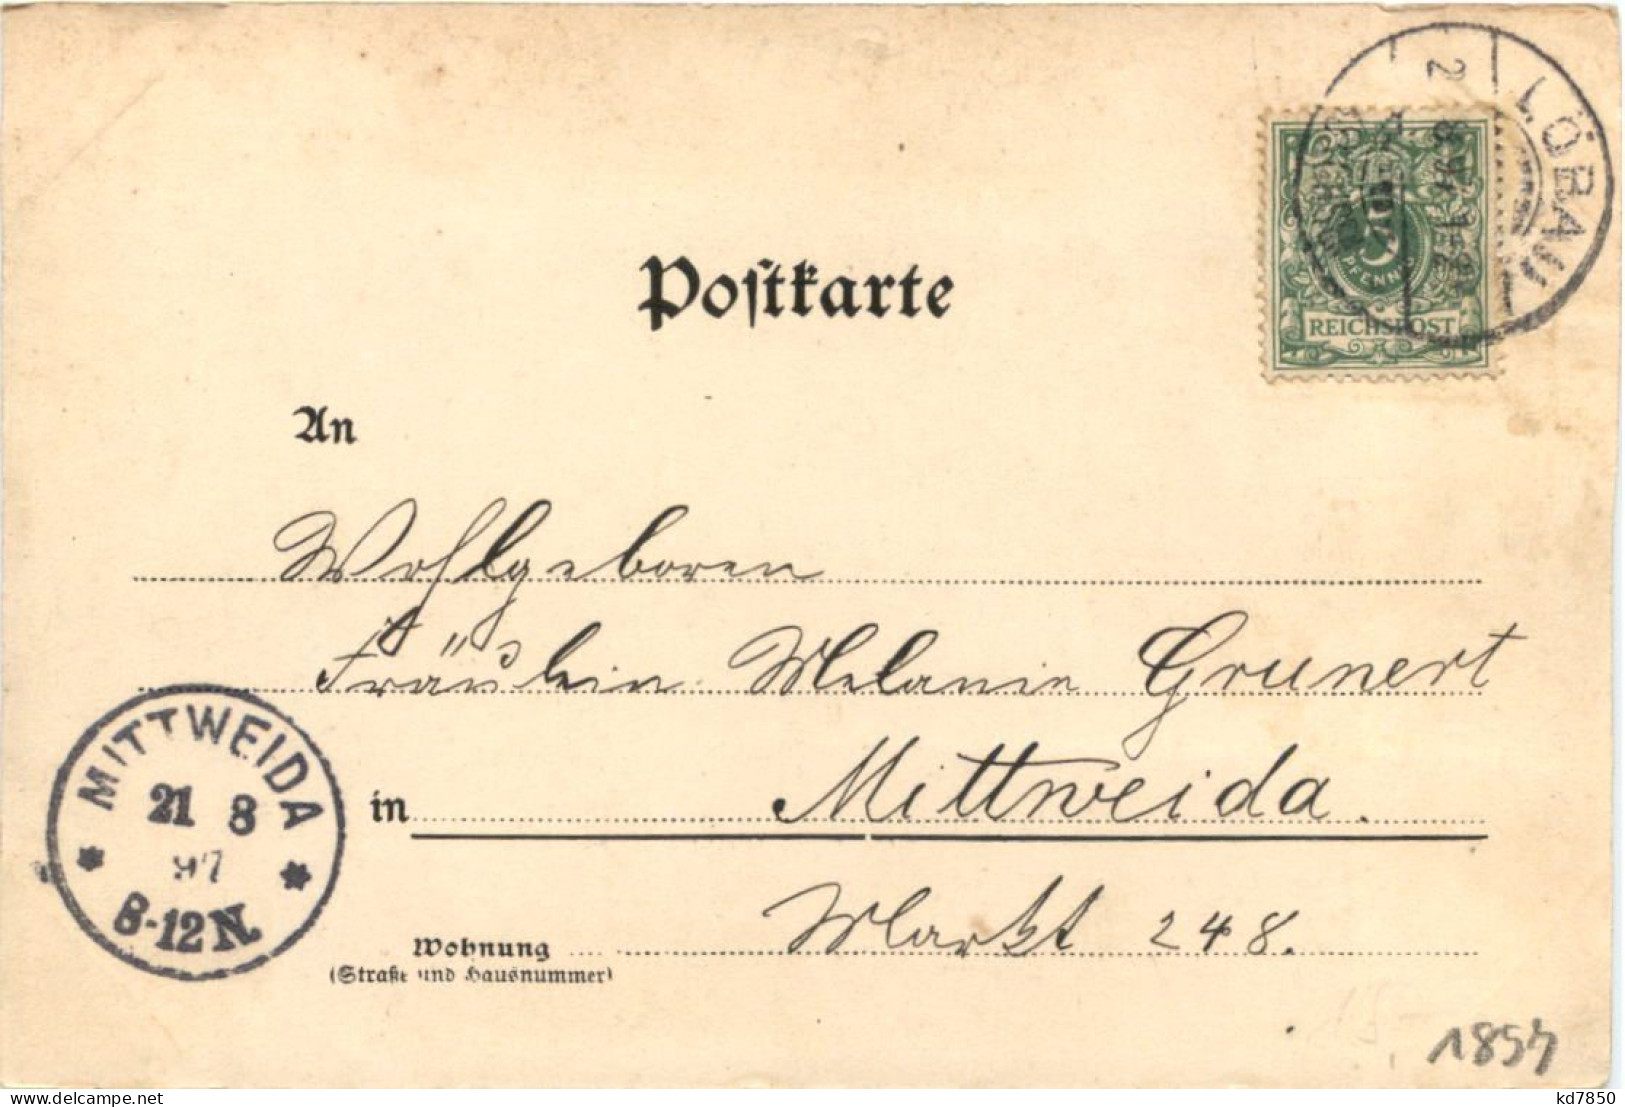 LÖBAU
2
Postkarte
5
PFENNIG
REICHSPOST
An
Wohlgeboren
Fräulein Melanie Grunert
in Mittweida.
MITTWEIDA
21 8
97
8-12N.
Wohnung Markt 248.
(Straße und Hausnummer)
1854
kd7850